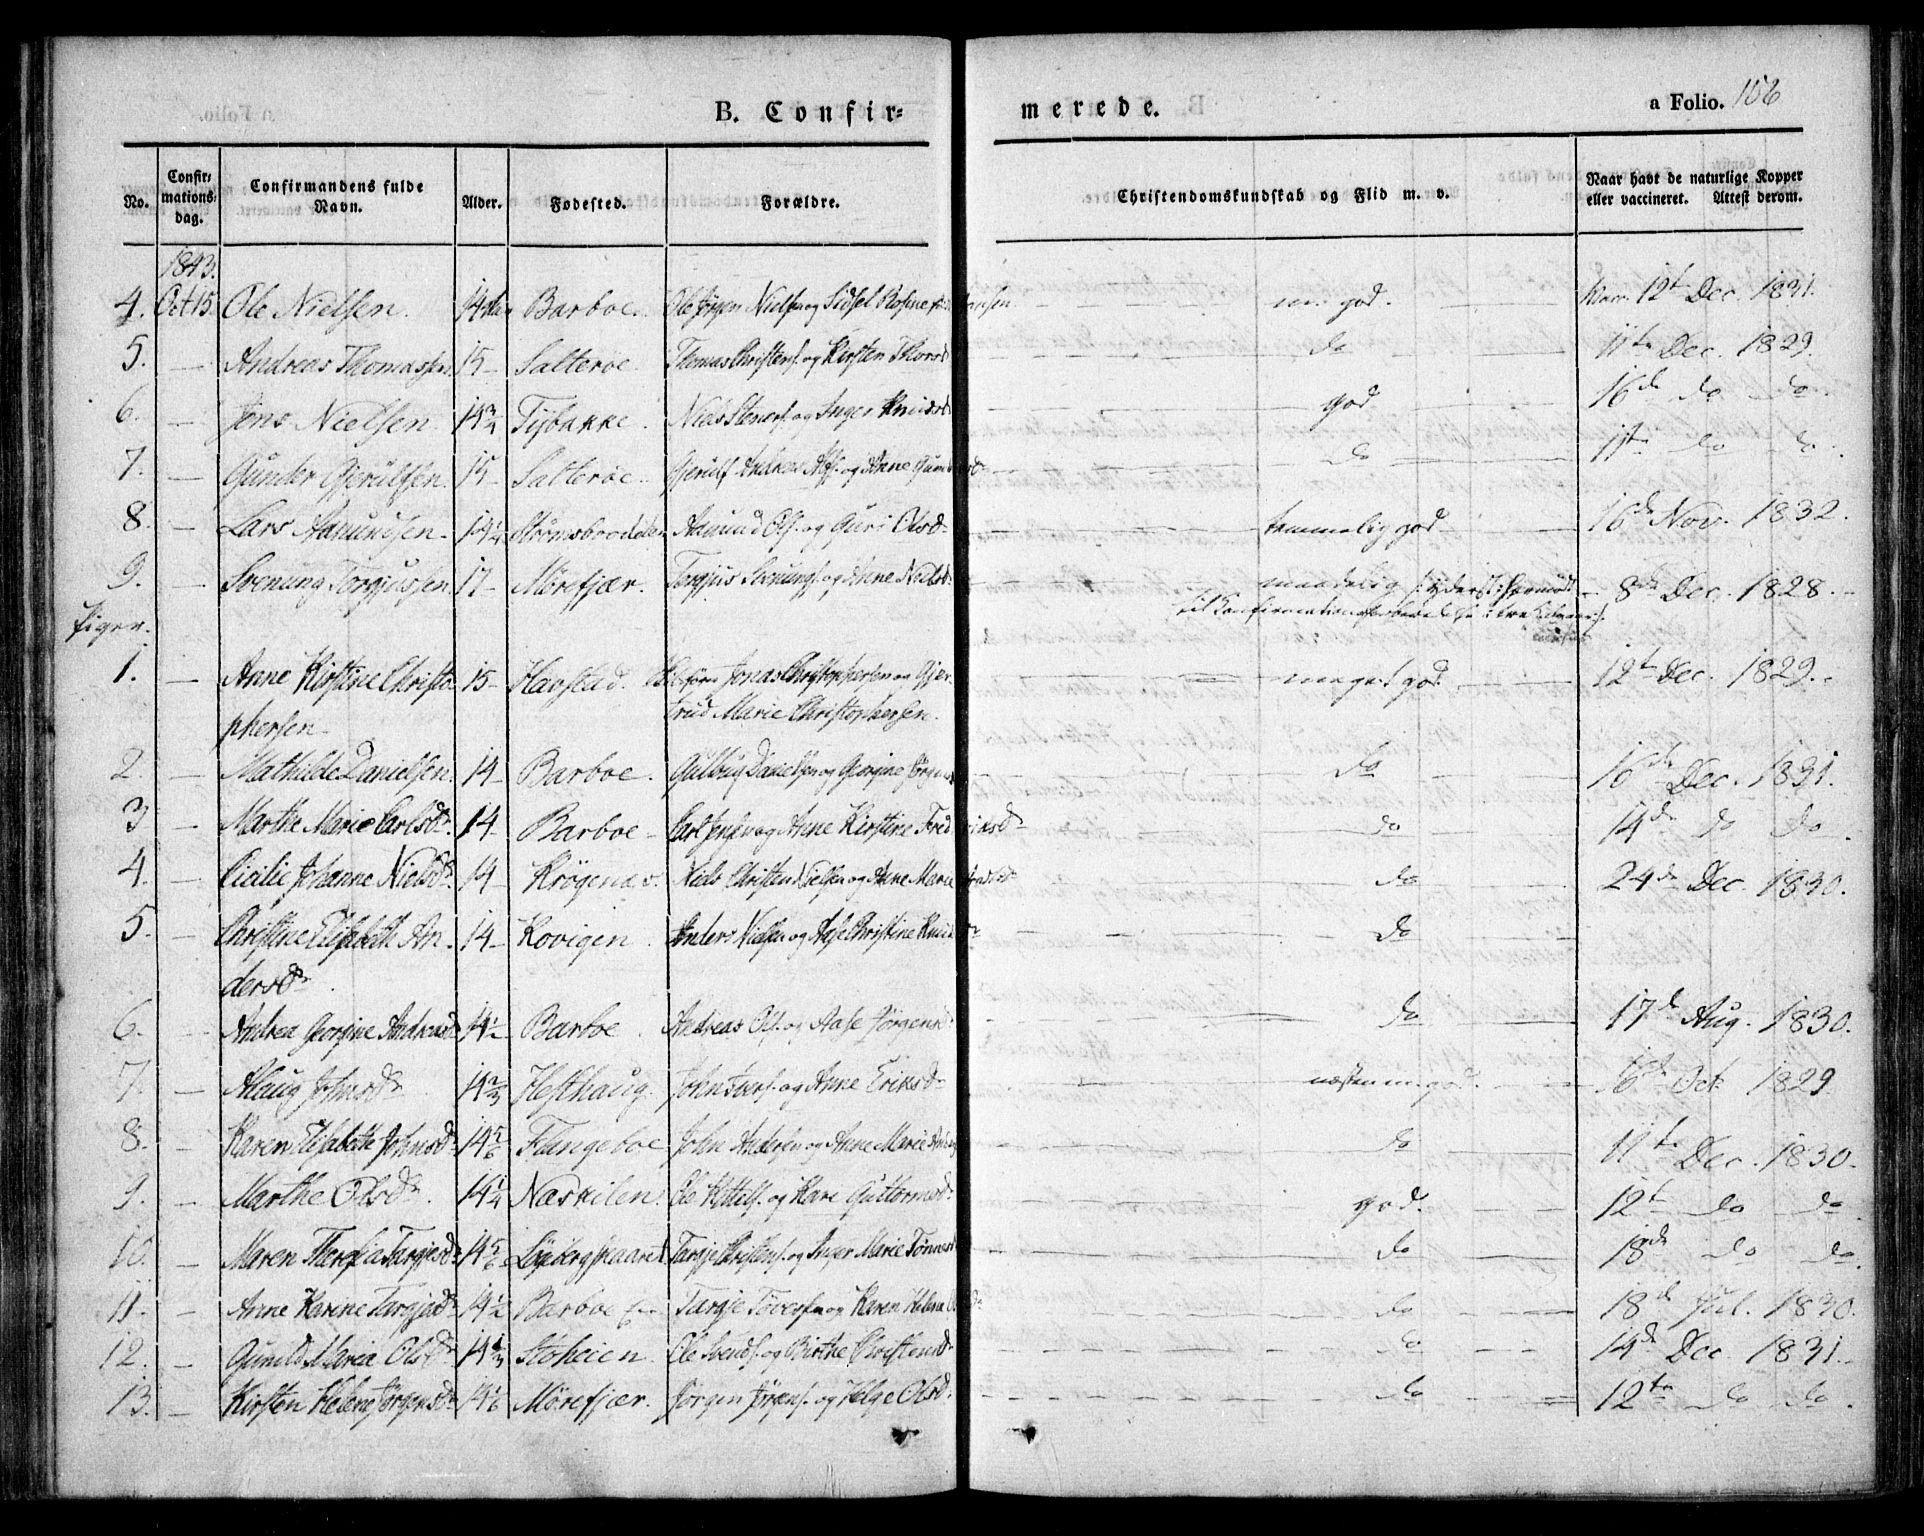 B. Confir=
merede.
a Folio. 106
No.
Confir=
mations=
dag.
Confirmandens fulde
Navn.
Alder.
Fødested.
Forældre.
Christendomskundskab og Flid m. v.
Naar havt de naturlige Kopper
eller vaccineret. Attest derom.
1843.
4. Oct 15. Ole Nielsen. 14 Barboe. Ole Jørgen Nielsen og Sidsel Rosine Hansen m. god. 12te Dec. 1831.
5. — Andreas Thomassen 15 Salterøe. Thomas Christens. og Kirsten Thorsd. do 11te Dec. 1829.
6. — Jens Nielsen 14 3/4 Tybakke. Niels Steners. og Inger Knudsd. god 16de do do.
7. — Gunder Gjerulfsen 15 Salterøe Gjerulf Andreas Alfs. og Anne Gundersd. do 11te do do.
8. — Lars Aamundsen 14 1/4 Strømsboodden Aamund Ols. og Guri Olsd. temmelig god 16de Nov. 1832.
9. — Svenung Torgjussen 17 Mörefjær. Torgjus Svenungs. og Anne Nielsd. maadelig 8de Dec. 1828.
til Confirmationsforberedelse
Piger.
1. — Anne Kirstine Christo- 15 Havstad. Jonas Christophersen og Gjer-
phersen trud Marie Christophersen. meget god. 12te Dec. 1829.
2. — Mathilde Danielsen. 14 Barboe. Gulbrug Danielsen og Georgine Jørgens do 16de Dec. 1831.
3 — Marthe Marie Carlsdr. 14 Barboe Carl Jensen og Anne Kirstine Fredriksdr do 14de do do.
4. — Cicilie Johanne Nielsdr. 14 Krøgenes. Niels Christen Nielsen og Anne Marie do 24de Dec. 1830.
5. — Christine Elisabeth An- 14 Kovigen. Anders Nielsen og Aase Christine Knudsdr do
dersdr.
6. — Andrea Georgine Andreasd. 14 1/2 Barboe. Andreas Ols. og Aase Jørgensd. do 17de Aug. 1830.
7. — Alaug Johnsdr 14 2/3 Hesthaug. John Ivers. og Anne Eriksdr næsten m. god. 16de Oct. 1829
8. — Karen Elisabeth Johnsdr. 14 5/6 Fangeboe John Andersen og Anne Marie do 11te Dec. 1830.
9. — Marthe Olsdr. 14 1/4 Næskilen. Ole Kittels. og Kari Guttormsd. god. 12te do do
10. — Maren Theresia Targjesd. 14 5/6 Targje Christens. og Inger Marie Tønnesd. do 18de do do.
11. — Anne Karine Targjesdr 14 1/2 Barboe Targje Tovesen og Karen Helene do 18de Jul. 1830.
12. — Gunild Maria Olsdr. 14 1/3 Stoheien. Ole Svends. og Birthe Christensd. do 14de Dec 1831.
13. — Kirsten Helene Jørgensdr 14 1/6 Mörefjær. Jørgen Jørgens. og Helge Olsd. do 12te do do.